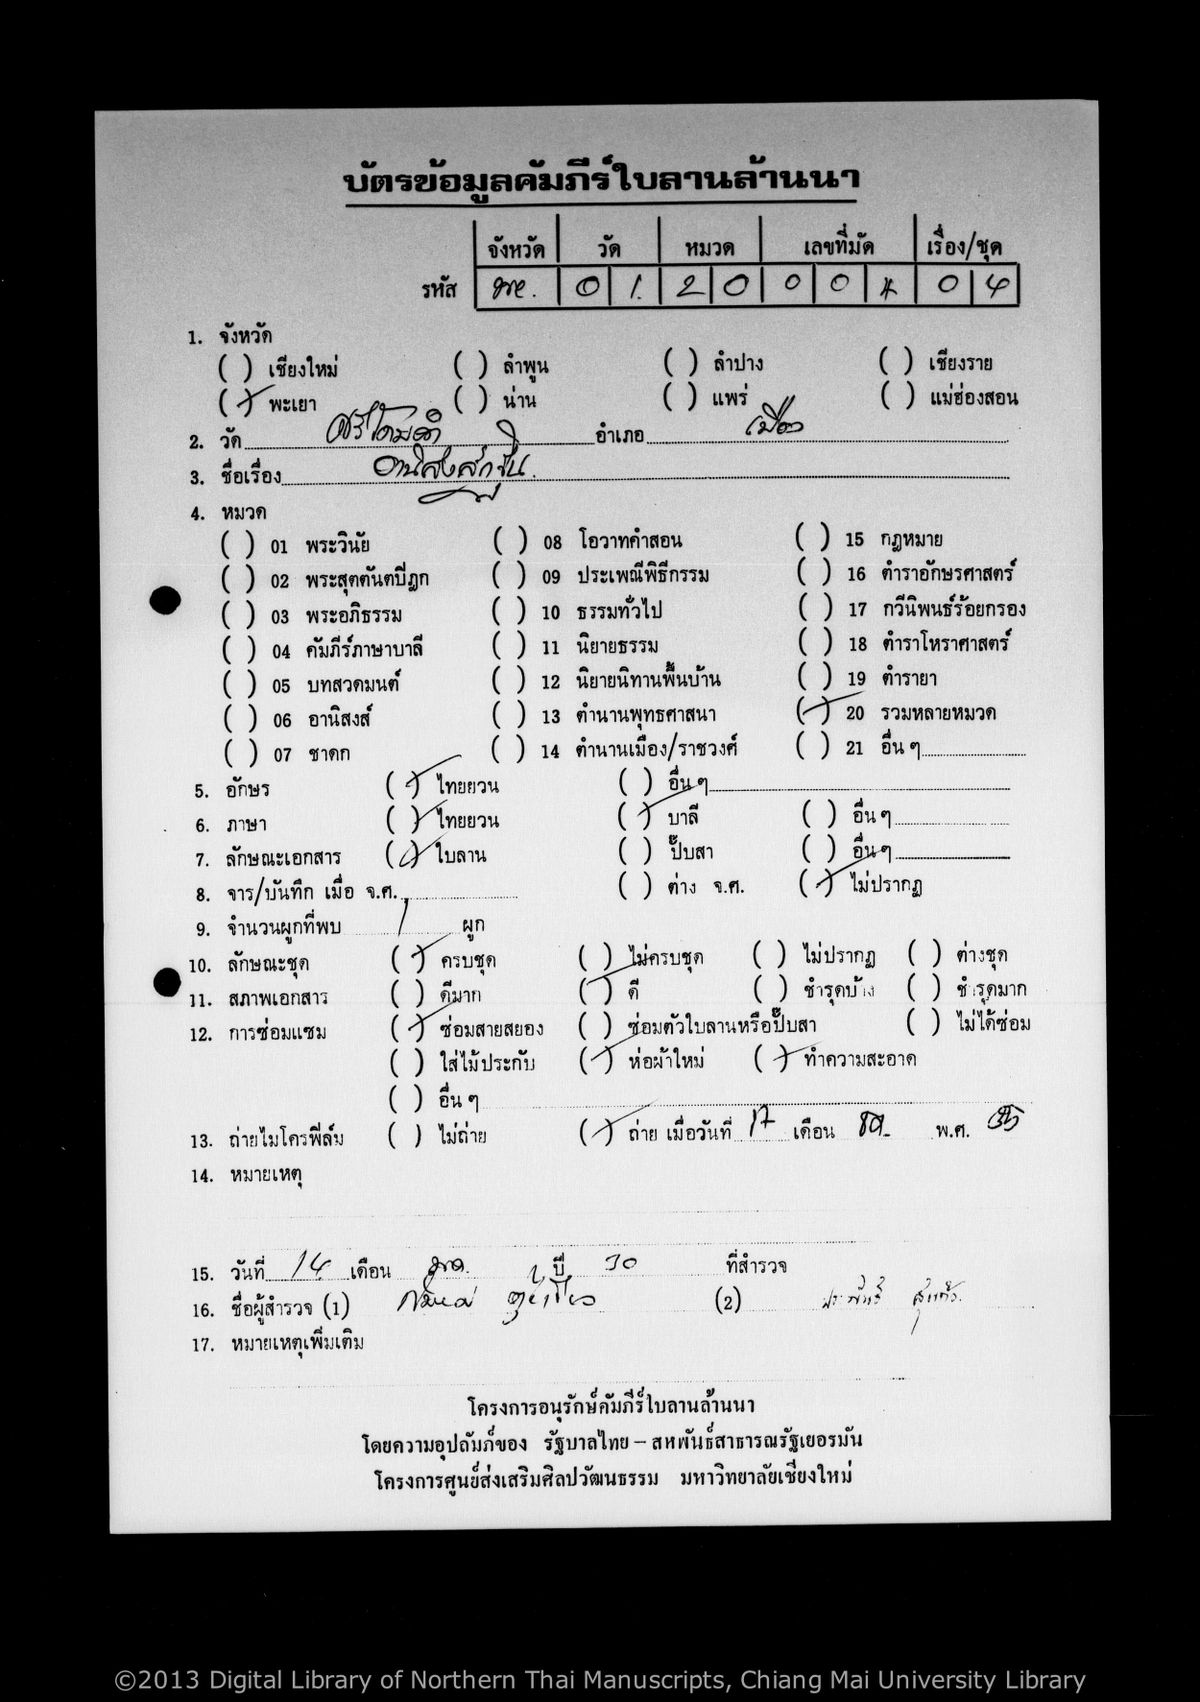 บัตรข้อมูลคัมภีร์ใบลานล้านนา
จังหวัด วัด หมวด เลขที่มัด เรื่อง/ชุด
รหัส พย. 0 1. 2 0 0 0 0 4
1. จังหวัด
( ) เชียงใหม่ ( ) ลำพูน ( ) ลำปาง ( ) เชียงราย
(✓) พะเยา ( ) น่าน ( ) แพร่ ( ) แม่ฮ่องสอน
2. วัด ศรีโคมคำ อำเภอ เมือง
3. ชื่อเรื่อง
4. หมวด
( ) 01 พระวินัย ( ) 08 โอวาทคำสอน ( ) 15 กฎหมาย
( ) 02 พระสุตตันตปิฎก ( ) 09 ประเพณีพิธีกรรม ( ) 16 ตำราอักษรศาสตร์
( ) 03 พระอภิธรรม ( ) 10 ธรรมทั่วไป ( ) 17 กวีนิพนธ์ร้อยกรอง
( ) 04 คัมภีร์ภาษาบาลี ( ) 11 นิยายธรรม ( ) 18 ตำราโหราศาสตร์
( ) 05 บทสวดมนต์ ( ) 12 นิยายนิทานพื้นบ้าน ( ) 19 ตำรายา
( ) 06 อานิสงส์ ( ) 13 ตำนานพุทธศาสนา (✓) 20 รวมหลายหมวด
( ) 07 ชาดก ( ) 14 ตำนานเมือง/ราชวงศ์ ( ) 21 อื่น ๆ
5. อักษร (✓) ไทยยวน ( ) อื่น ๆ
6. ภาษา (✓) ไทยยวน (✓) บาลี ( ) อื่น ๆ
7. ลักษณะเอกสาร (✓) ใบลาน ( ) ปั๊บสา ( ) อื่น ๆ
8. จาร/บันทึก เมื่อ จ.ศ. ( ) ต่าง จ.ศ. (✓) ไม่ปรากฏ
9. จำนวนผูกที่พบ 1 ผูก
10. ลักษณะชุด (✓) ครบชุด ( ) ไม่ครบชุด ( ) ไม่ปรากฏ ( ) ต่างชุด
11. สภาพเอกสาร ( ) ดีมาก (✓) ดี ( ) ชำรุดบ้าง ( ) ชำรุดมาก
12. การซ่อมแซม (✓) ซ่อมสายสยอง ( ) ซ่อมตัวใบลานหรือปั๊บสา ( ) ไม่ได้ซ่อม
( ) ใส่ไม้ประกับ (✓) ห่อผ้าใหม่ (✓) ทำความสะอาด
( ) อื่น ๆ
13. ถ่ายไมโครฟิล์ม ( ) ไม่ถ่าย (✓) ถ่าย เมื่อวันที่ 17 เดือน พ.ศ.
14. หมายเหตุ
15. วันที่ 14 เดือน ปี 30 ที่สำรวจ
16. ชื่อผู้สำรวจ (1) (2)
17. หมายเหตุเพิ่มเติม
โครงการอนุรักษ์คัมภีร์ใบลานล้านนา
โดยความอุปถัมภ์ของ รัฐบาลไทย – สหพันธ์สาธารณรัฐเยอรมัน
โครงการศูนย์ส่งเสริมศิลปวัฒนธรรม มหาวิทยาลัยเชียงใหม่
©2013 Digital Library of Northern Thai Manuscripts, Chiang Mai University Library